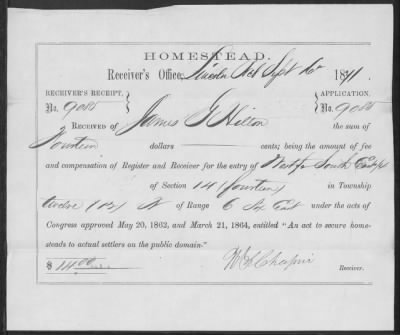 HOMESTEAD.
Receiver's Office, Lincoln Neb Sept 16" 1871.
RECEIVER'S RECEIPT, APPLICATION,
No. 9085 No. 9085
RECEIVED OF James Hilton the sum of
Fourteen dollars cents; being the amount of fee
and compensation of Register and Receiver for the entry of South East
of Section 14 (fourteen) in Township
twelve (12) N of Range 6 Six East under the acts of
Congress approved May 20, 1862, and March 21, 1864, entitled "An act to secure home-
steads to actual settlers on the public domain."
$ 14.00 Chapin
Receiver.